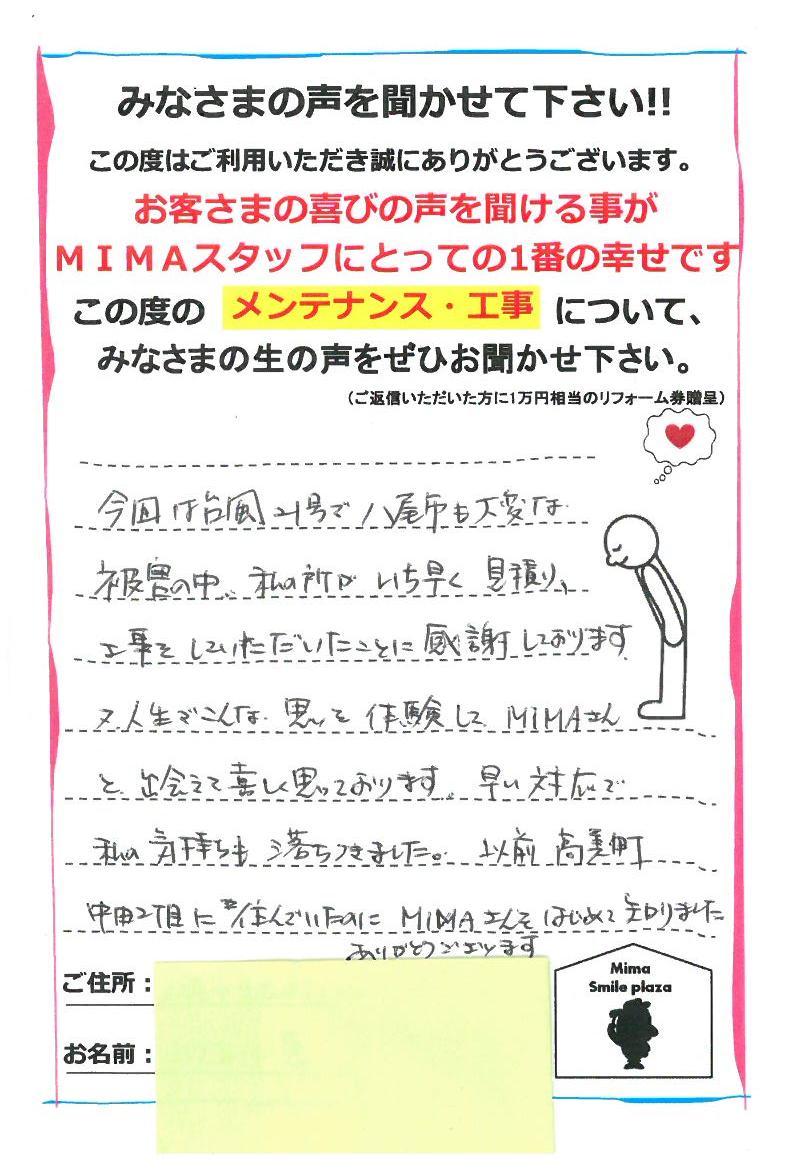 みなさまの声を聞かせて下さい!!
この度はご利用いただき誠にありがとうございます。
お客さまの喜びの声を聞ける事が
ＭＩＭＡスタッフにとっての1番の幸せです
この度の メンテナンス・工事 について、
みなさまの生の声をぜひお聞かせ下さい。
（ご返信いただいた方に1万円相当のリフォーム券贈呈）
今回は台風21号で八尾市も大変な
被害の中、私の所がいち早く見積り、
工事をしていただいたことに感謝しております
又、人生でこんな思いを体験して MiMAさん
と出会えて喜しく思っております。早い対応で
私の気持ちも落ちつきました。以前高美町
中田2丁目に住んでいたのに MiMAさんをはじめて知りました
ありがとうございます
ご住所：
お名前：
Mima
Smile plaza